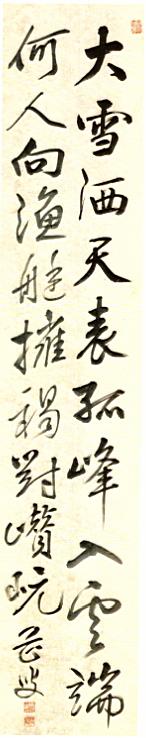 大雪洒天表孤峰入雲端
何人向漁艇擁褐對巑岏 芒叟